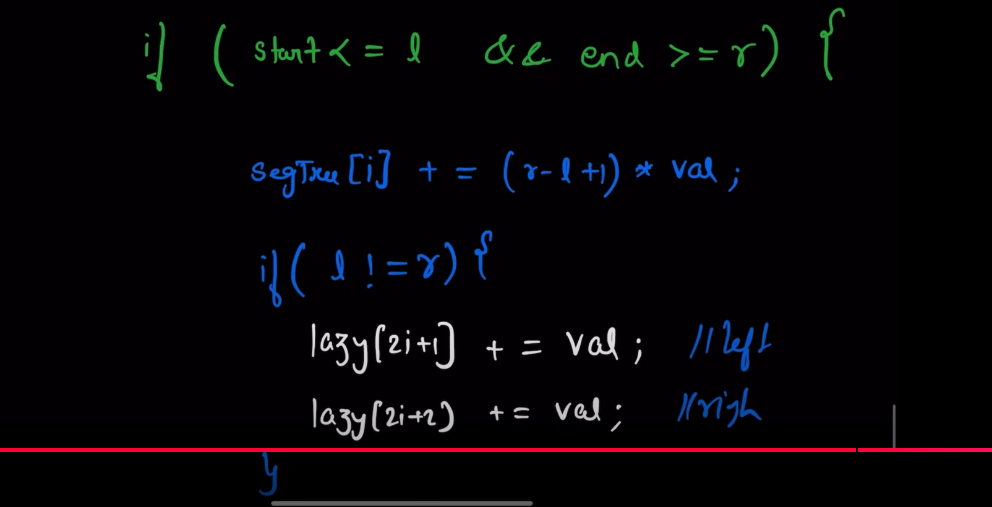 if ( start <= l && end >= r) {
segTree [i] + = (r-l+1) * val ;
if ( l != r) {
lazy[2i+1] + = val ; // left
lazy(2i+2) += val ; // righ
}